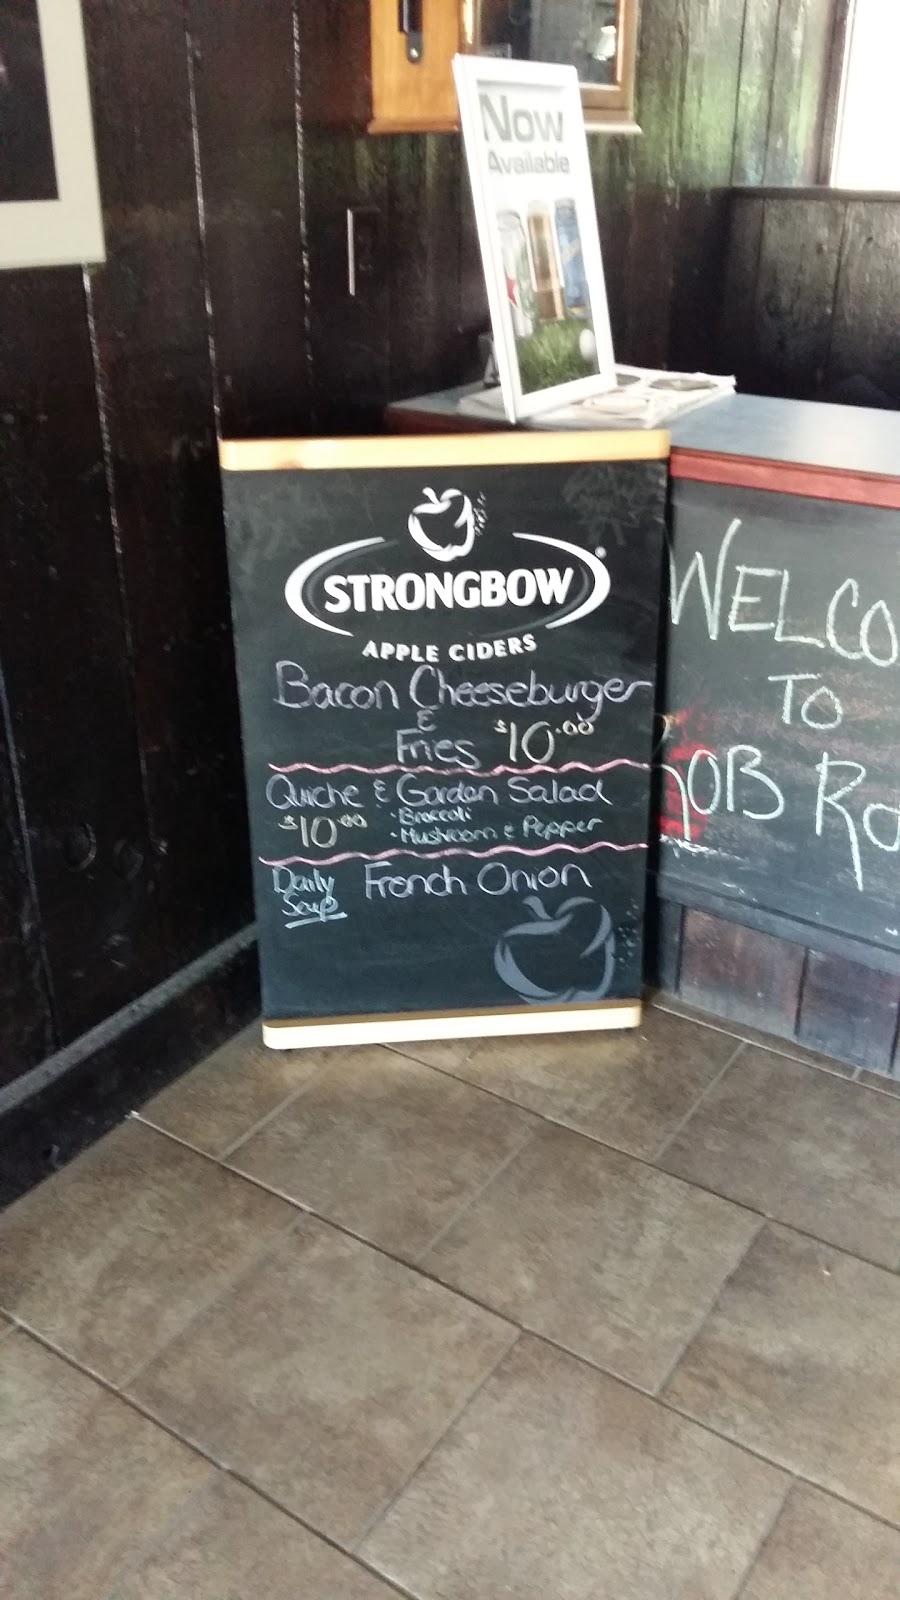 Now
Available
STRONGBOW®
APPLE CIDERS
Bacon Cheeseburger
&
Fries $10.00
Quiche & Garden Salad
$10.00
· Broccoli
· Mushroom & Pepper
Daily
Soup
French Onion
WELCO
TO
OB RO